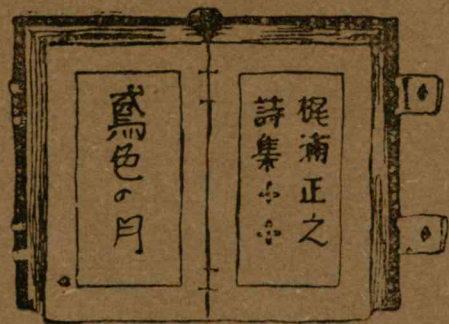 梶浦正之
詩集
鳶色の月